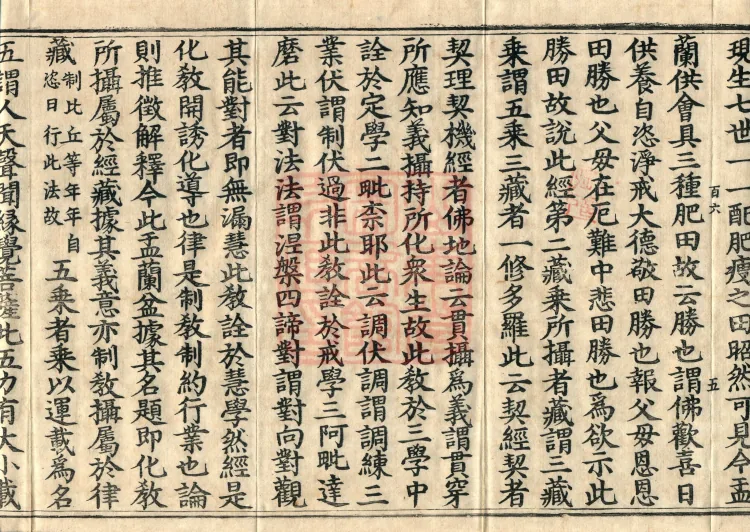 現生七世一一酬肥瘦之田昭然可見今盂
百六 五
蘭供會具三種肥田故云勝也謂佛歡喜日
供養自恣淨戒大德敬田勝也報父母恩恩
田勝也父母在厄難中悲田勝也爲欲示此
勝田故說此經第二藏乘所攝者藏謂三藏
乘謂五乘三藏者一修多羅此云契經契者
契理契機經者佛地論云貫攝爲義謂貫穿
所應知義攝持所化衆生故此教於三學中
詮於定學二毗柰耶此云調伏調謂調練三
業伏謂制伏過非此教詮於戒學三阿毗達
磨此云對法法謂涅槃四諦對謂對向對觀
其能對者即無漏慧此教詮於慧學然經是
化教開誘化導也律是制教制約行業也論
則推徵解釋今此盂蘭盆據其名題即化教
所攝屬於經藏據其義意亦制教攝屬於律
藏制比丘等年年自恣日行此法故五乘者乘以運載爲名
五謂人天聲聞緣覺菩薩此五力有大小載